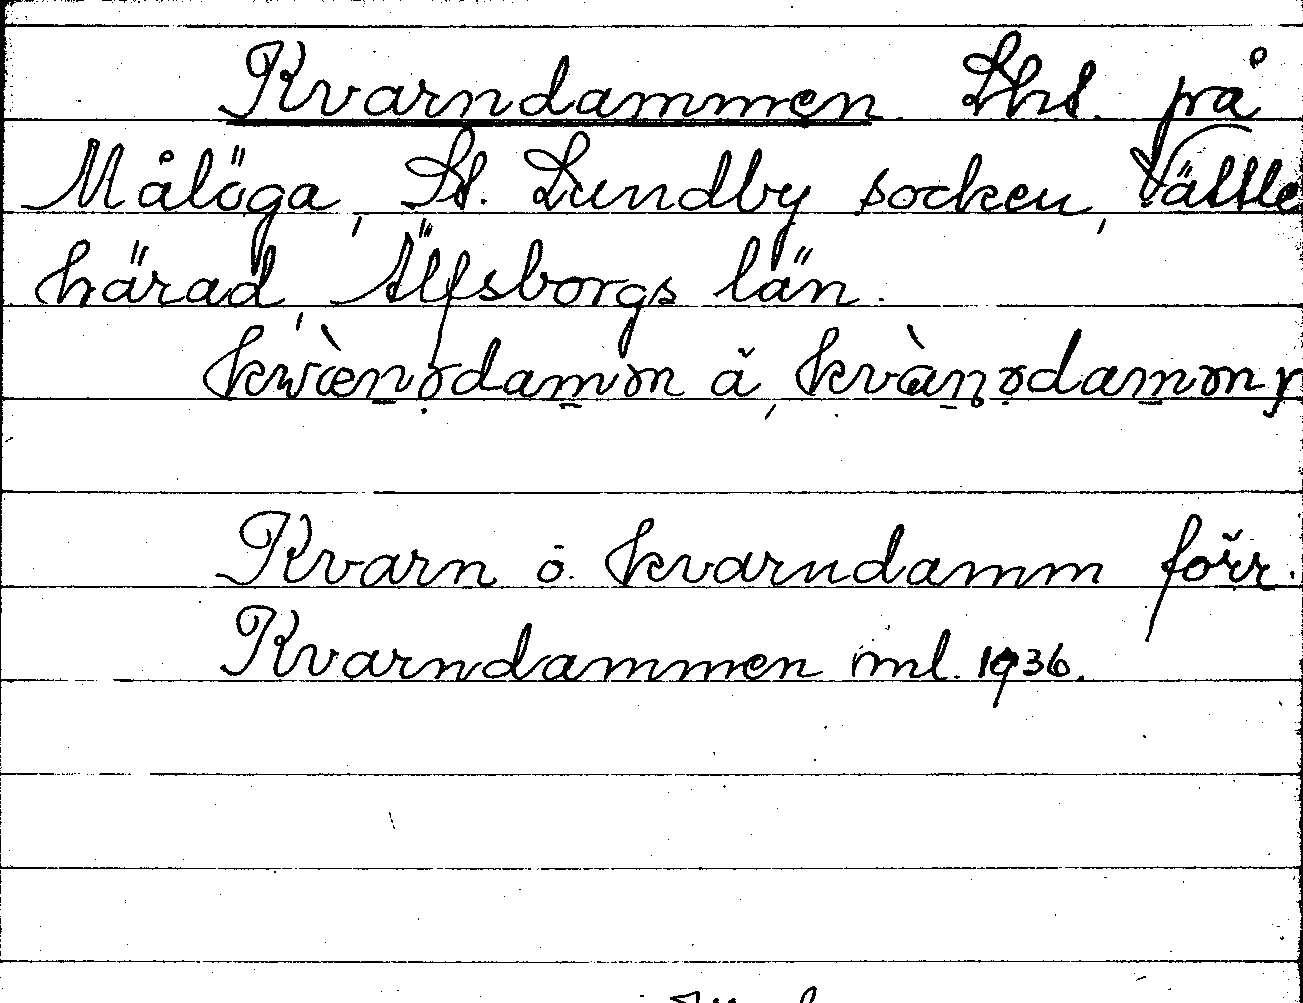 Kvarndammen. Lht. på
Målöga, St. Lundby socken, Vättle
härad, Älfsborgs län.
kwæ̀nədamən å, kvànədamən
Kvarn o. kvarndamm förr.
Kvarndammen ml. 1936.